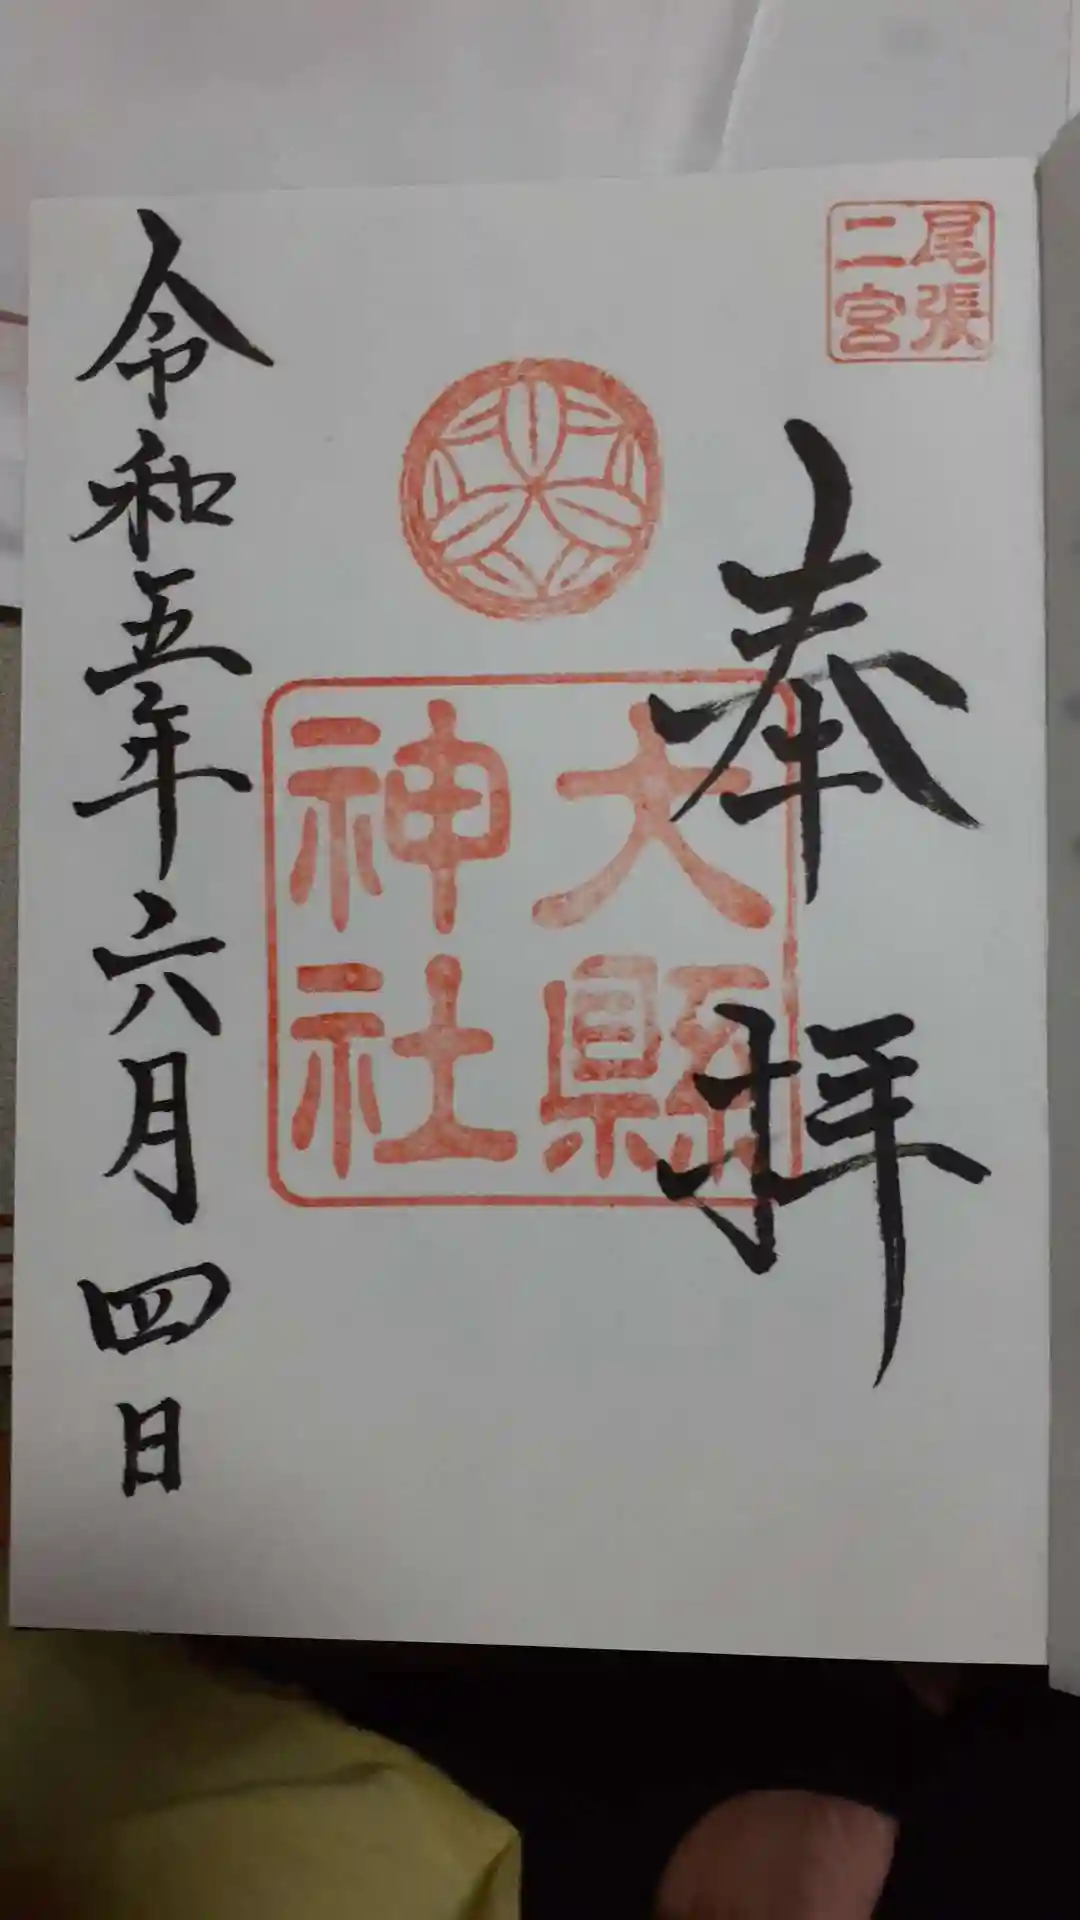 尾張
二宮
奉拝
大縣
神社
令和五年六月四日